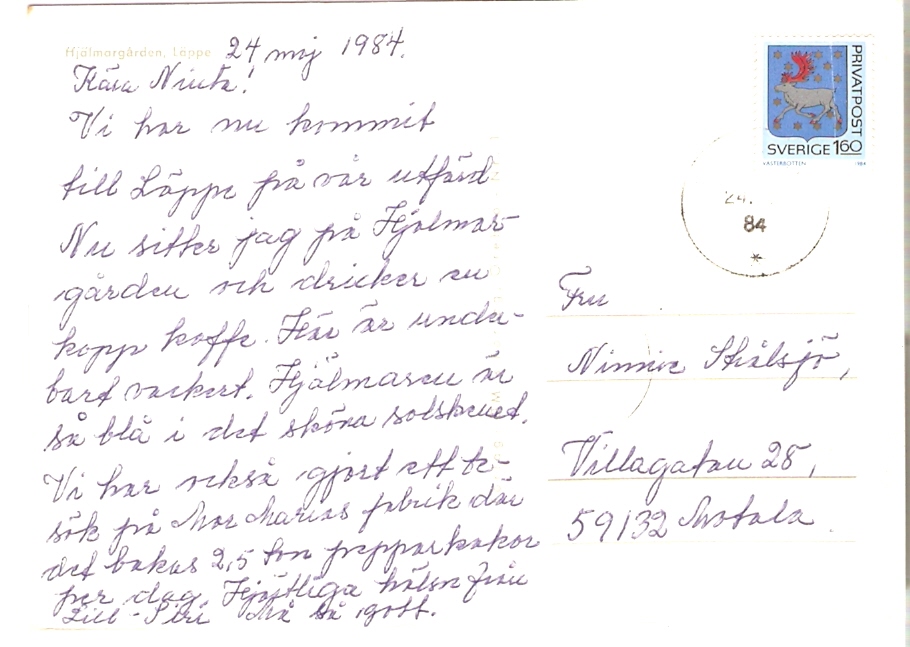 Hjälmargården, Läppe
24 maj 1984.
Kära Ninita!
Vi har nu kommit
till Läppe på vår utfärd
Nu sitter jag på Hjälmar-
gården och dricker en
kopp kaffe. Här är under-
bart vackert. Hjälmaren är
så blå i det sköna solskenet.
Vi har också gjort ett be-
sök på Mor Marias fabrik där
det bakas 2,5 ton pepparkakor
per dag. Hjärtliga hälsn från
Lill-Siri Må så gott.
PRIVATPOST
SVERIGE 160
VÄSTERBOTTEN 1984
24.
84
*
Fru
Villagatan 28,
59132 Motala